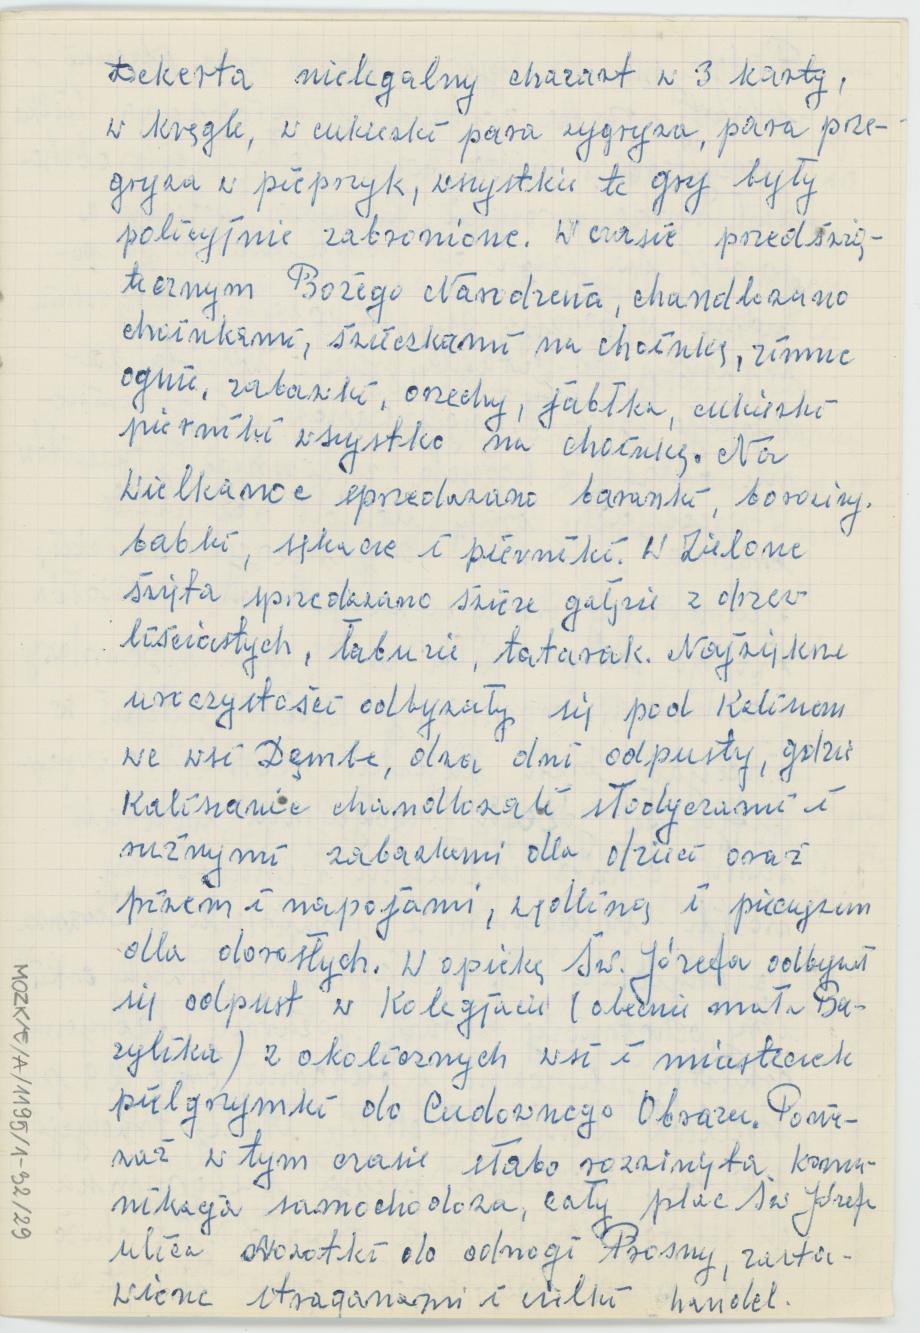 Dekerta nielegalny chazart w 3 karty,
w kręgle, w cukierki para wygrywa, para prze-
grywa w pieprzyk, wszystkie te gry były
policyjnie zabronione. W czasie przedświą-
tecznym Bożego Narodzenia, chandlowano
choinkami, świeczkami na choinkę, zimne
ognie, zabawki, orzechy, jabłka, cukierki
pierniki wszystko na choinkę. Na
Wielkanoc sprzedawano baranki, borowiny.
babki, sękacze i pierniki. W Zielone
Święta sprzedawano świeże gałęzie z drzew
liściastych, łabuzie, tatarak. Największe
uroczystości odbywały się pod Kaliszem
we wsi Dęmbe, dwa dni odpusty, gdzie
Kaliszanie chandlowali słodyczami i
rużnymi zabawkami dla dzieci oraz
piwem i napojami, wędliną i pieczywem
dla dorosłych. W opiekę Św. Józefa odbywał
się odpust w Kolegjacie (obecnie mała Ba-
zylika) z okolicznych wsi i miasteczek
pielgrzymki do Cudownego Obrazu. Ponie-
waż w tym czasie słabo rozwinięta komu-
nikacja samochodowa, cały plac Św Józefa
ulica Nowotki do odnogi Prosny, zasta-
wione straganami i wielki handel.
MOZK/E/A/1195/1-92/29